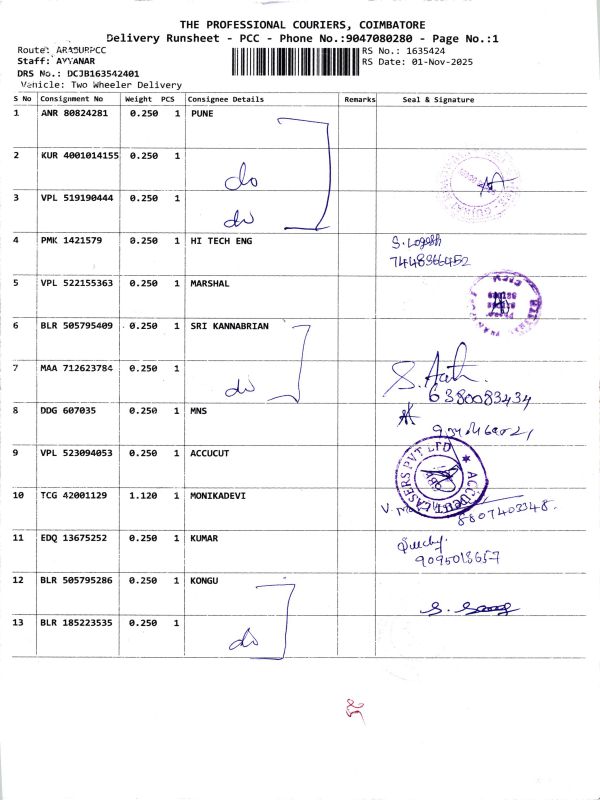 THE PROFESSIONAL COURIERS, COIMBATORE
Delivery Runsheet - PCC - Phone No.:9047080280 - Page No.:1
Route: ARASURPCC
RS No.: 1635424
Staff: AYYANAR
RS Date: 01-Nov-2025
DRS No.: DCJB163542401
Vehicle: Two Wheeler Delivery
S No Consignment No Weight PCS Consignee Details Remarks Seal & Signature
1 ANR 80824281 0.250 1 PUNE
2 KUR 4001014155 0.250 1
do
3 VPL 519190444 0.250 1
do
4 PMK 1421579 0.250 1 HI TECH ENG S. Logesh
7448966452
5 VPL 522155363 0.250 1 MARSHAL
6 BLR 505795409 0.250 1 SRI KANNABRIAN
7 MAA 712623784 0.250 1
do
6380083434
8 DDG 607035 0.250 1 MNS
9 VPL 523094053 0.250 1 ACCUCUT
ACCUCUT LASERS PVT LTD
10 TCG 42001129 1.120 1 MONIKADEVI
8807402348.
11 EDQ 13675252 0.250 1 KUMAR
9095018657
12 BLR 505795286 0.250 1 KONGU
13 BLR 185223535 0.250 1
do